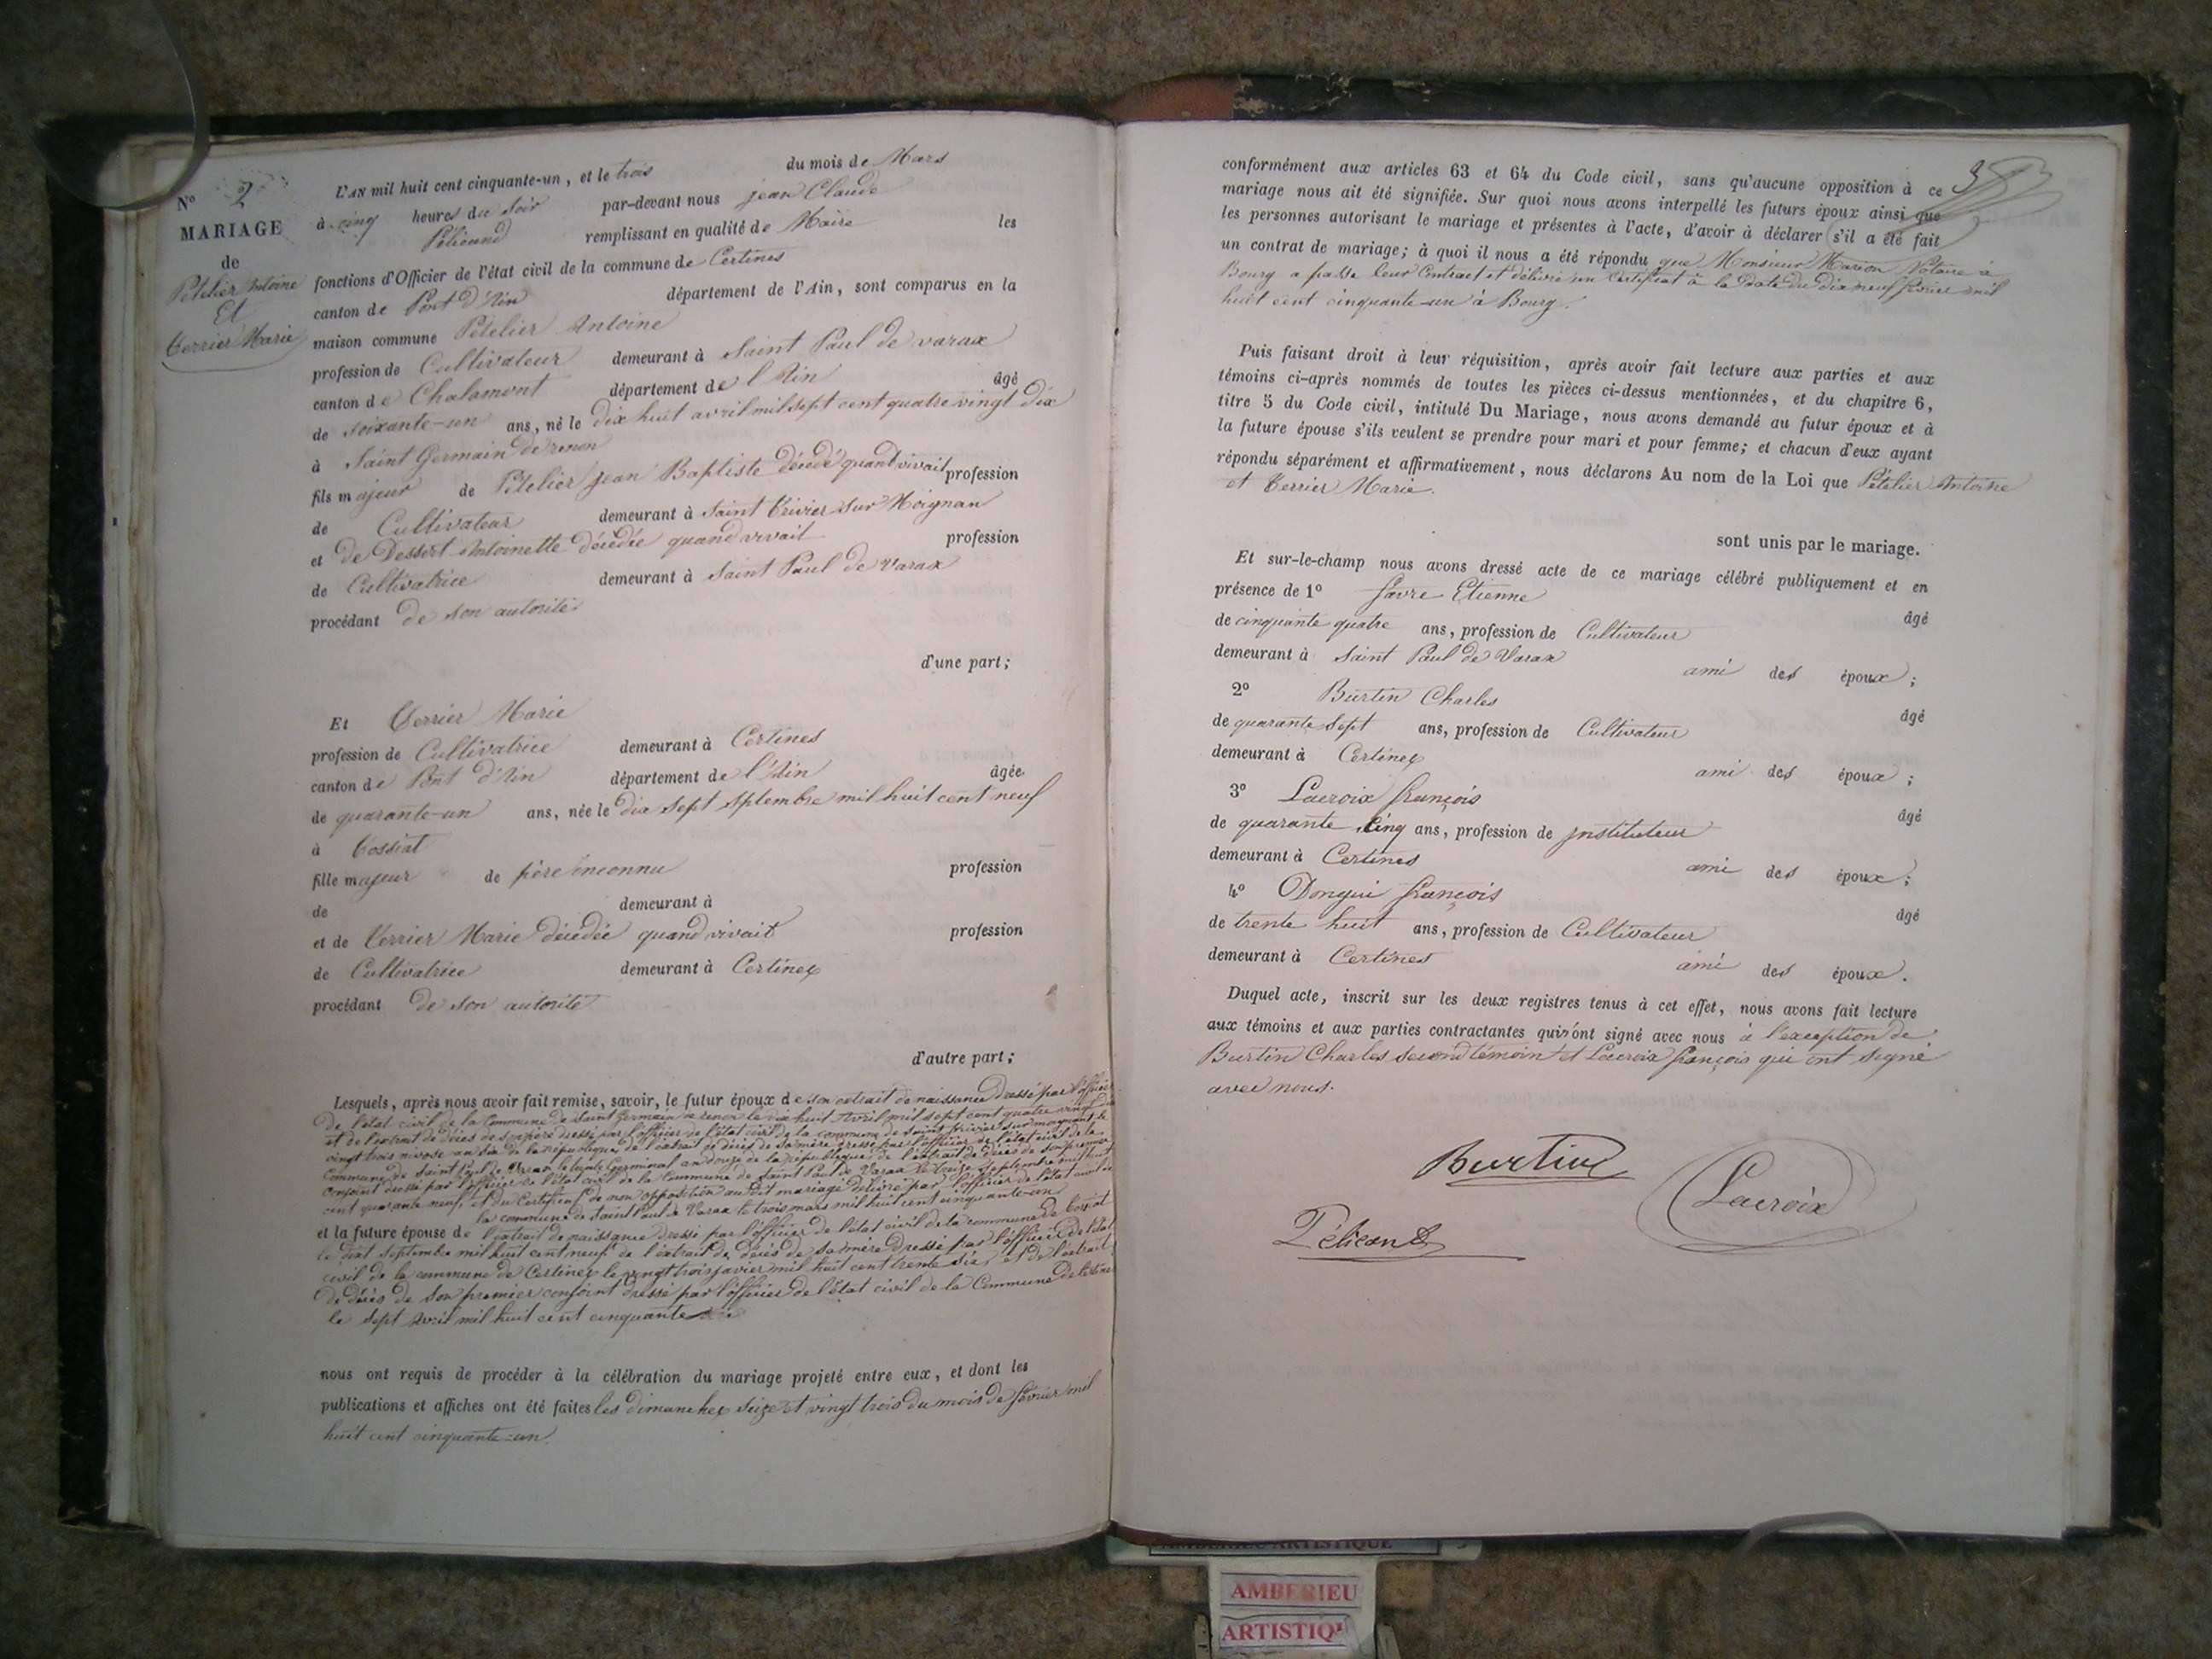 N° 2
MARIAGE
de
Pételier Antoine
Et
Verrier Marie
L'AN mil huit cent cinquante-un, et le trois du mois de Mars
à cinq heures du soir par-devant nous jean Claude
Péliçand remplissant en qualité de Maire les
fonctions d'Officier de l'état civil de la commune de Certines
canton de Pont d'Ain département de l'Ain, sont comparus en la
maison commune Pételier Antoine
profession de Cultivateur demeurant à Saint Paul de varax
canton de Chalamont département de l'Ain âgé
de soixante-un ans, né le dix huit avril mil sept cent quatre vingt dix
à Saint Germain de renon
fils majeur de Pételier jean Baptiste décédé quand vivait profession
de Cultivateur demeurant à Saint Trivier sur Moignan
et de Dessert Antoinette décédée quand vivait profession
de Cultivatrice demeurant à Saint Paul de Varax
procédant de son autorité
d'une part;
Et Verrier Marie
profession de Cultivatrice demeurant à Certines
canton de Pont d'Ain département de l'Ain âgée
de quarante-un ans, née le dix sept septembre mil huit cent neuf
à Tossiat
fille majeur de père inconnu profession
de demeurant à
et de Verrier Marie décédée quand vivait profession
de Cultivatrice demeurant à Certines
procédant de son autorité
d'autre part;
Lesquels, après nous avoir fait remise, savoir, le futur époux de son extrait de naissance dressé par l'officier
de l'état civil de la Commune de Saint Germain de renon le dix huit Avril mil sept cent quatre vingt dix
et de l'extrait de décès de son père dressé par l'officier de l'état civil de la commune de Saint Trivier sur moignant le
vingt trois nivose an dix de la république, de l'extrait de décès de sa mère dressé par l'officier de l'état civil de la
Commune de Saint Paul de Varax le trente Germinal an douze de la république de l'extrait de décès de son premier
conjoint dressé par l'officier de l'état civil de la Commune de Saint Paul de Varax le douze septembre mil huit
cent quarante neuf, et du Certificat de non opposition au dit mariage délivré par l'officier de l'état civil de
la commune de Saint Paul de Varax le trois mars mil huit cent cinquante-un
et la future épouse de l'extrait de naissance dressé par l'officier de l'état civil de la commune de Tossiat
le septembre mil huit cent neuf de l'extrait de décès de sa mère dressé par l'officier de l'état
civil de la commune de Certines le vingt trois janvier mil huit cent trente six, et de l'extrait
de décès de son premier conjoint dressé par l'officier de l'état civil de la Commune de Certines
le sept Avril mil huit cent cinquante
nous ont requis de procéder à la célébration du mariage projeté entre eux, et dont les
publications et affiches ont été faites les dimanches seize et vingt trois du mois de février mil
huit cent cinquante-un
3
conformément aux articles 63 et 64 du Code civil, sans qu'aucune opposition à ce
mariage nous ait été signifiée. Sur quoi nous avons interpellé les futurs époux ainsi que
les personnes autorisant le mariage et présentes à l'acte, d'avoir à déclarer s'il a été fait
un contrat de mariage; à quoi il nous a été répondu que Monsieur Marion Notaire à
Bourg a passé leur Contract et délivré un Certificat à la Date du dix neuf février mil
huit cent cinquante-un à Bourg.
Puis faisant droit à leur réquisition, après avoir fait lecture aux parties et aux
témoins ci-après nommés de toutes les pièces ci-dessus mentionnées, et du chapitre 6,
titre 5 du Code civil, intitulé Du Mariage, nous avons demandé au futur époux et à
la future épouse s'ils veulent se prendre pour mari et pour femme; et chacun d'eux ayant
répondu séparément et affirmativement, nous déclarons Au nom de la Loi que Pételier Antoine
et Verrier Marie.
sont unis par le mariage.
Et sur-le-champ nous avons dressé acte de ce mariage célébré publiquement et en
présence de 1° favre Etienne âgé
de cinquante quatre ans, profession de Cultivateur
demeurant à Saint Paul de Varax ami des époux;
2° Burtin Charles âgé
de quarante sept ans, profession de Cultivateur
demeurant à Certines ami des époux;
3° Lacroix françois âgé
de quarante cinq ans, profession de instituteur
demeurant à Certines ami des époux;
4° Donqui françois âgé
de trente huit ans, profession de Cultivateur
demeurant à Certines ami des époux.
Duquel acte, inscrit sur les deux registres tenus à cet effet, nous avons fait lecture
aux témoins et aux parties contractantes qui n'ont signé avec nous à l'exception de
Burtin Charles second témoin et Lacroix françois qui ont signé
avec nous.
Burtin
Lacroix
Péliçand
AMBERIEU ARTISTIQUE
AMBERIEU
ARTISTIQ